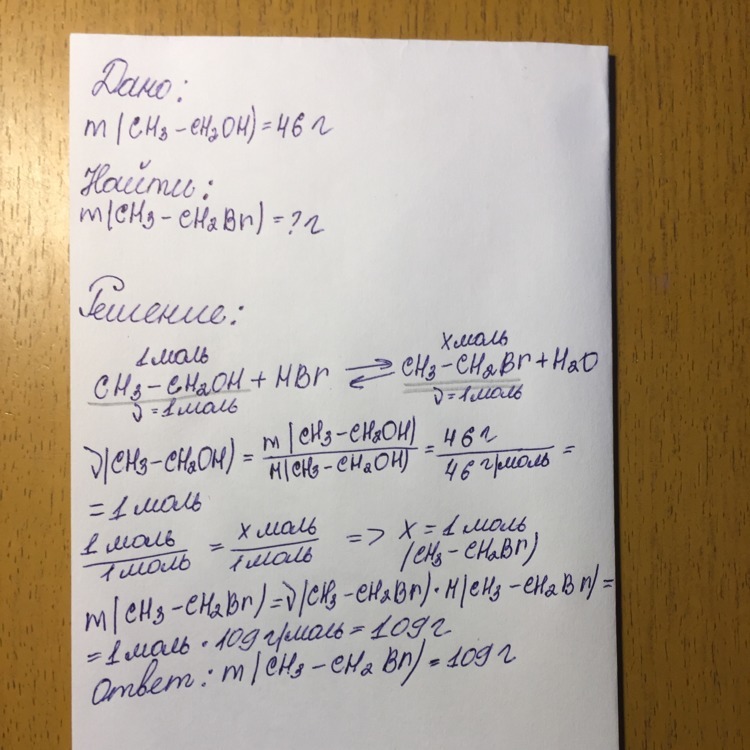 Дано:
m(CH₃-CH₂OH)=46 г
Найти:
m(CH₃-CH₂Br)=? г
Решение:
1 моль x моль
CH₃-CH₂OH + HBr ⇌ CH₃-CH₂Br + H₂O
ν=1 моль ν=1 моль
ν(CH₃-CH₂OH) = m(CH₃-CH₂OH)/M(CH₃-CH₂OH) = 46 г/46 г/моль =
= 1 моль
1 моль/1 моль = x моль/1 моль => x = 1 моль
(CH₃-CH₂Br)
m(CH₃-CH₂Br)=ν(CH₃-CH₂Br)·M(CH₃-CH₂Br)=
= 1 моль · 109 г/моль = 109 г
Ответ: m(CH₃-CH₂Br)=109 г